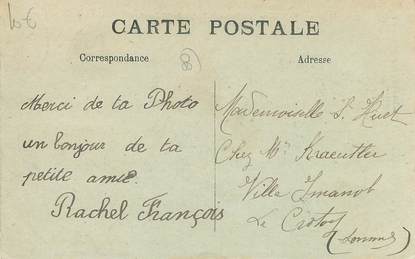 10€
CARTE POSTALE
Correspondance
Adresse
(80)
Merci de ta Photo
un bonjour de ta
petite amie.
Rachel François
Mademoiselle S. Huet
Chez Mr Kraeutler
Ville
Le Crotoy
(Somme)